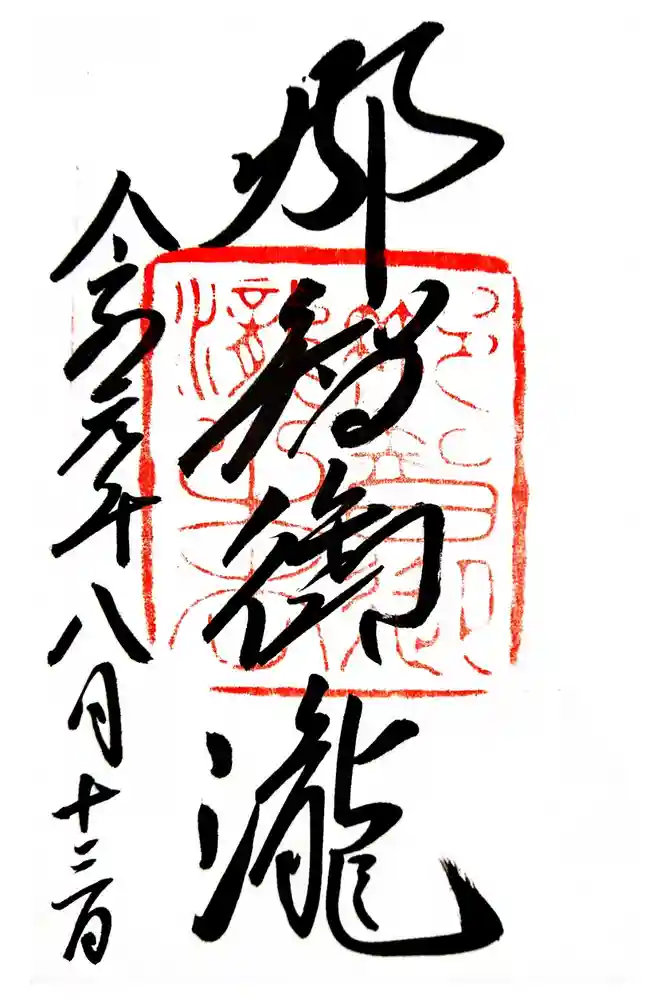 那智御瀧
令和元年八月十三日